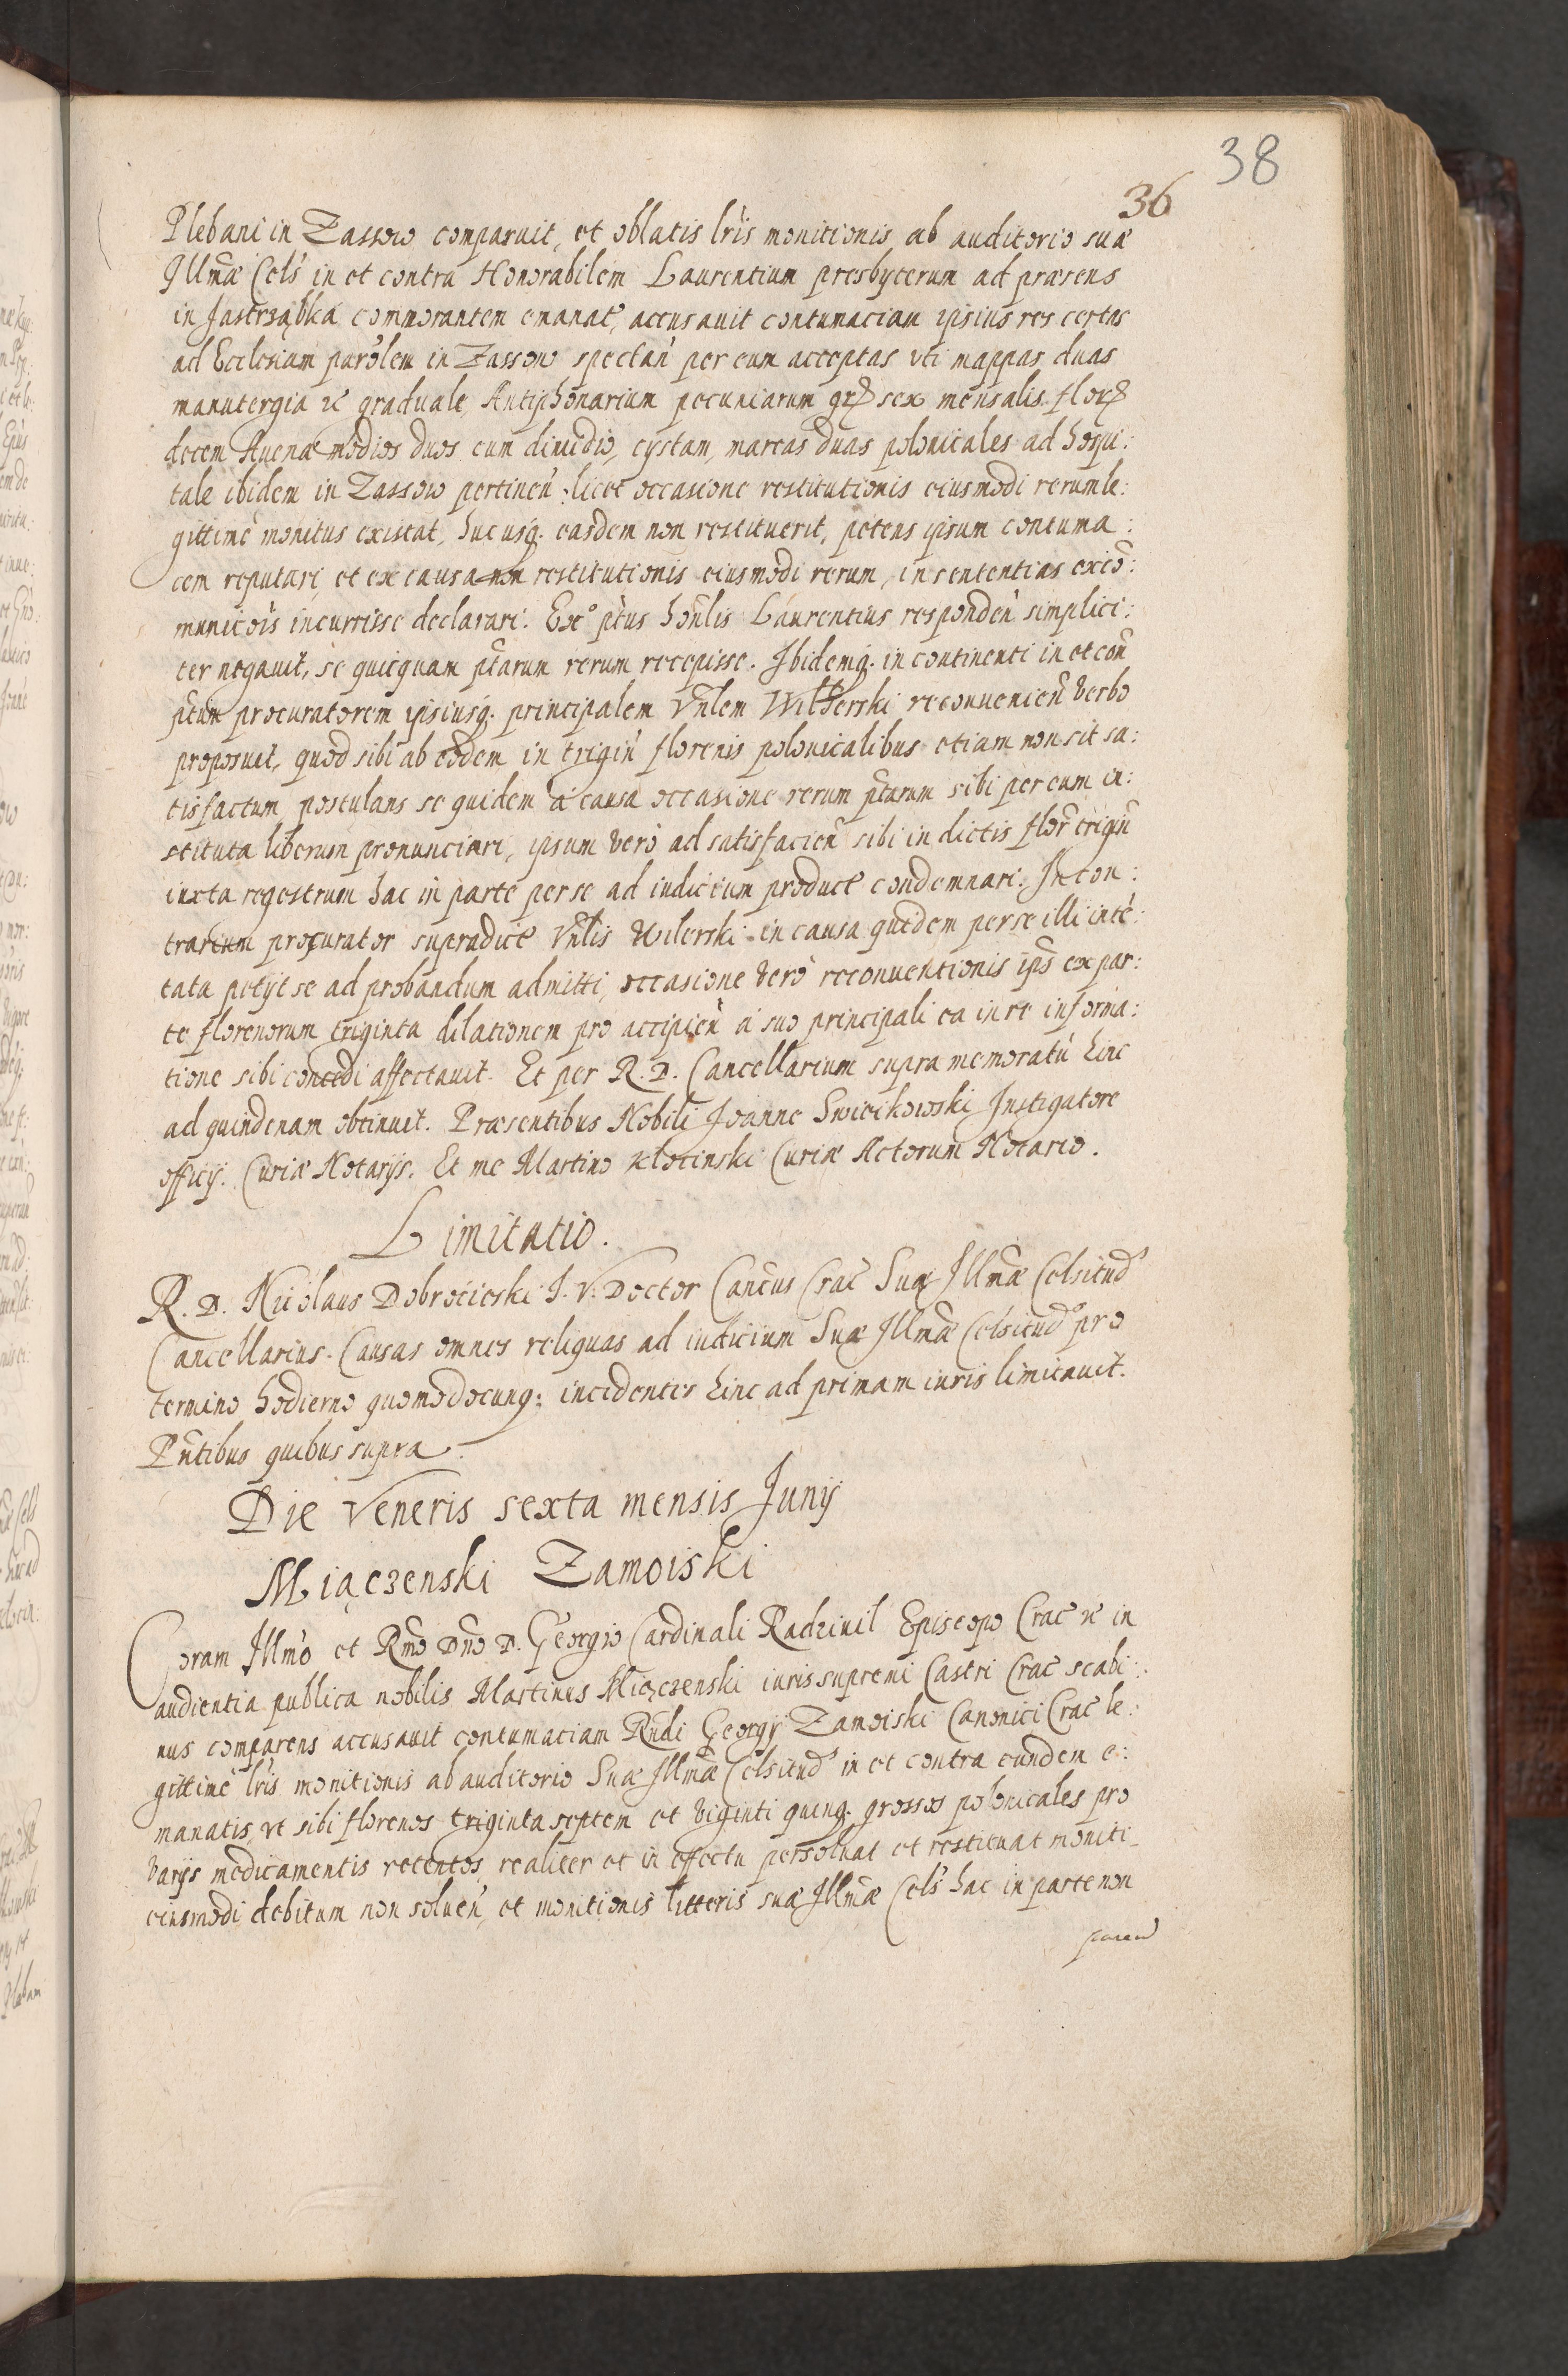 38
36
Plebani in Zassow comparuit, et oblatis lris monitionis ab auditorio suæ
Illmæ Cels in et contra Honorabilem Laurentium presbyterum ad præsens
in Jastrząbka commorantem emanat, accusauit contumaciam ipsius res certas
ad Ecclesiam parolem in Zassow spectan per eum acceptas vti mappas duas
manutergia 2 graduale, Antiphonarium pecuniarum grz sex mensalis florz
decem Auenæ modios duos cum dimidio, cystam, marcas duas polonicales ad hospi:
tale ibidem in Zassow pertinen: licet occasione restitutionis eiusmodi rerum le:
gittime monitus existat, hucusq. easdem non restituerit, petens ipsum contuma:
cem reputari, et ex causa non restitutionis eiusmodi rerum, in sententias exco:
municõis incurrisse declarari. Exº ptus honlis Laurentius responden simplici:
ter negauit, se quicquam ptarum rerum recepisse. Ibidemq. in continenti in et con
ptum procuratorem ipsiusq. principalem Vnlem Wilkerski reconuenien verbo
proposuit, quod sibi ab eodem in trigin florenis polonicalibus etiam non sit sa:
tisfactum postulans se quidem a causa occasione rerum ptarum sibi per eum in:
stituta liberum pronunciari, ipsum vero ad satisfacien sibi in dictis flor trigin
iuxta regestrum hac in parte per se ad iudicium product condemnari. In con:
trarium procurator supradict Vnlis Wilerski in causa quidem per se illi inte:
tata petijt se ad probandum admitti, occasione vero reconuentionis ips ex par:
te florenorum triginta dilationem pro accipien a suo principali ea in re informa:
tione sibi concedi affectauit. Et per R. D. Cancellarium supra memoratu hinc
ad quindenam obtinuit. Præsentibus Nobili Joanne Swiecikowski Instigatore
officij. Curiæ Notarijs. Et me Martino Klocinski Curiæ Actorum Notario.
Limitatio.
R. D. Nicolaus Dobrocieski I. V. Doctor Cancus Crac Suæ Illmæ Celsitud
Cancellarius. Causas omnes reliquas ad iudicium Suæ Illmæ Celsitud pro
termino hodierno quomodocunq: incidentes hinc ad primam iuris limitauit.
Pntibus quibus supra.
Die Veneris sexta mensis Junij
Miączenski Zamoiski
Coram Illmo et Rmo Dno D. Georgio Cardinali Radziuil Episcopo Crac 2 in
audientia publica nobilis Martinus Miączenski iuris supremi Castri Crac scabi:
nus comparens accusauit contumaciam Rndi Georgij Zamoiski Canonici Crac le:
gittime lris monitionis ab auditorio Suæ Illmæ Celsitud in et contra eundem e:
manatis, vt sibi florenos triginta septem et viginti quinq. grossos polonicales pro
varijs medicamentis retentos, realiter et in effectu persoluat et restituat moniti
eiusmodi debitum non soluen, et monitionis litteris suæ Illmæ Cels hac in parte non
paren